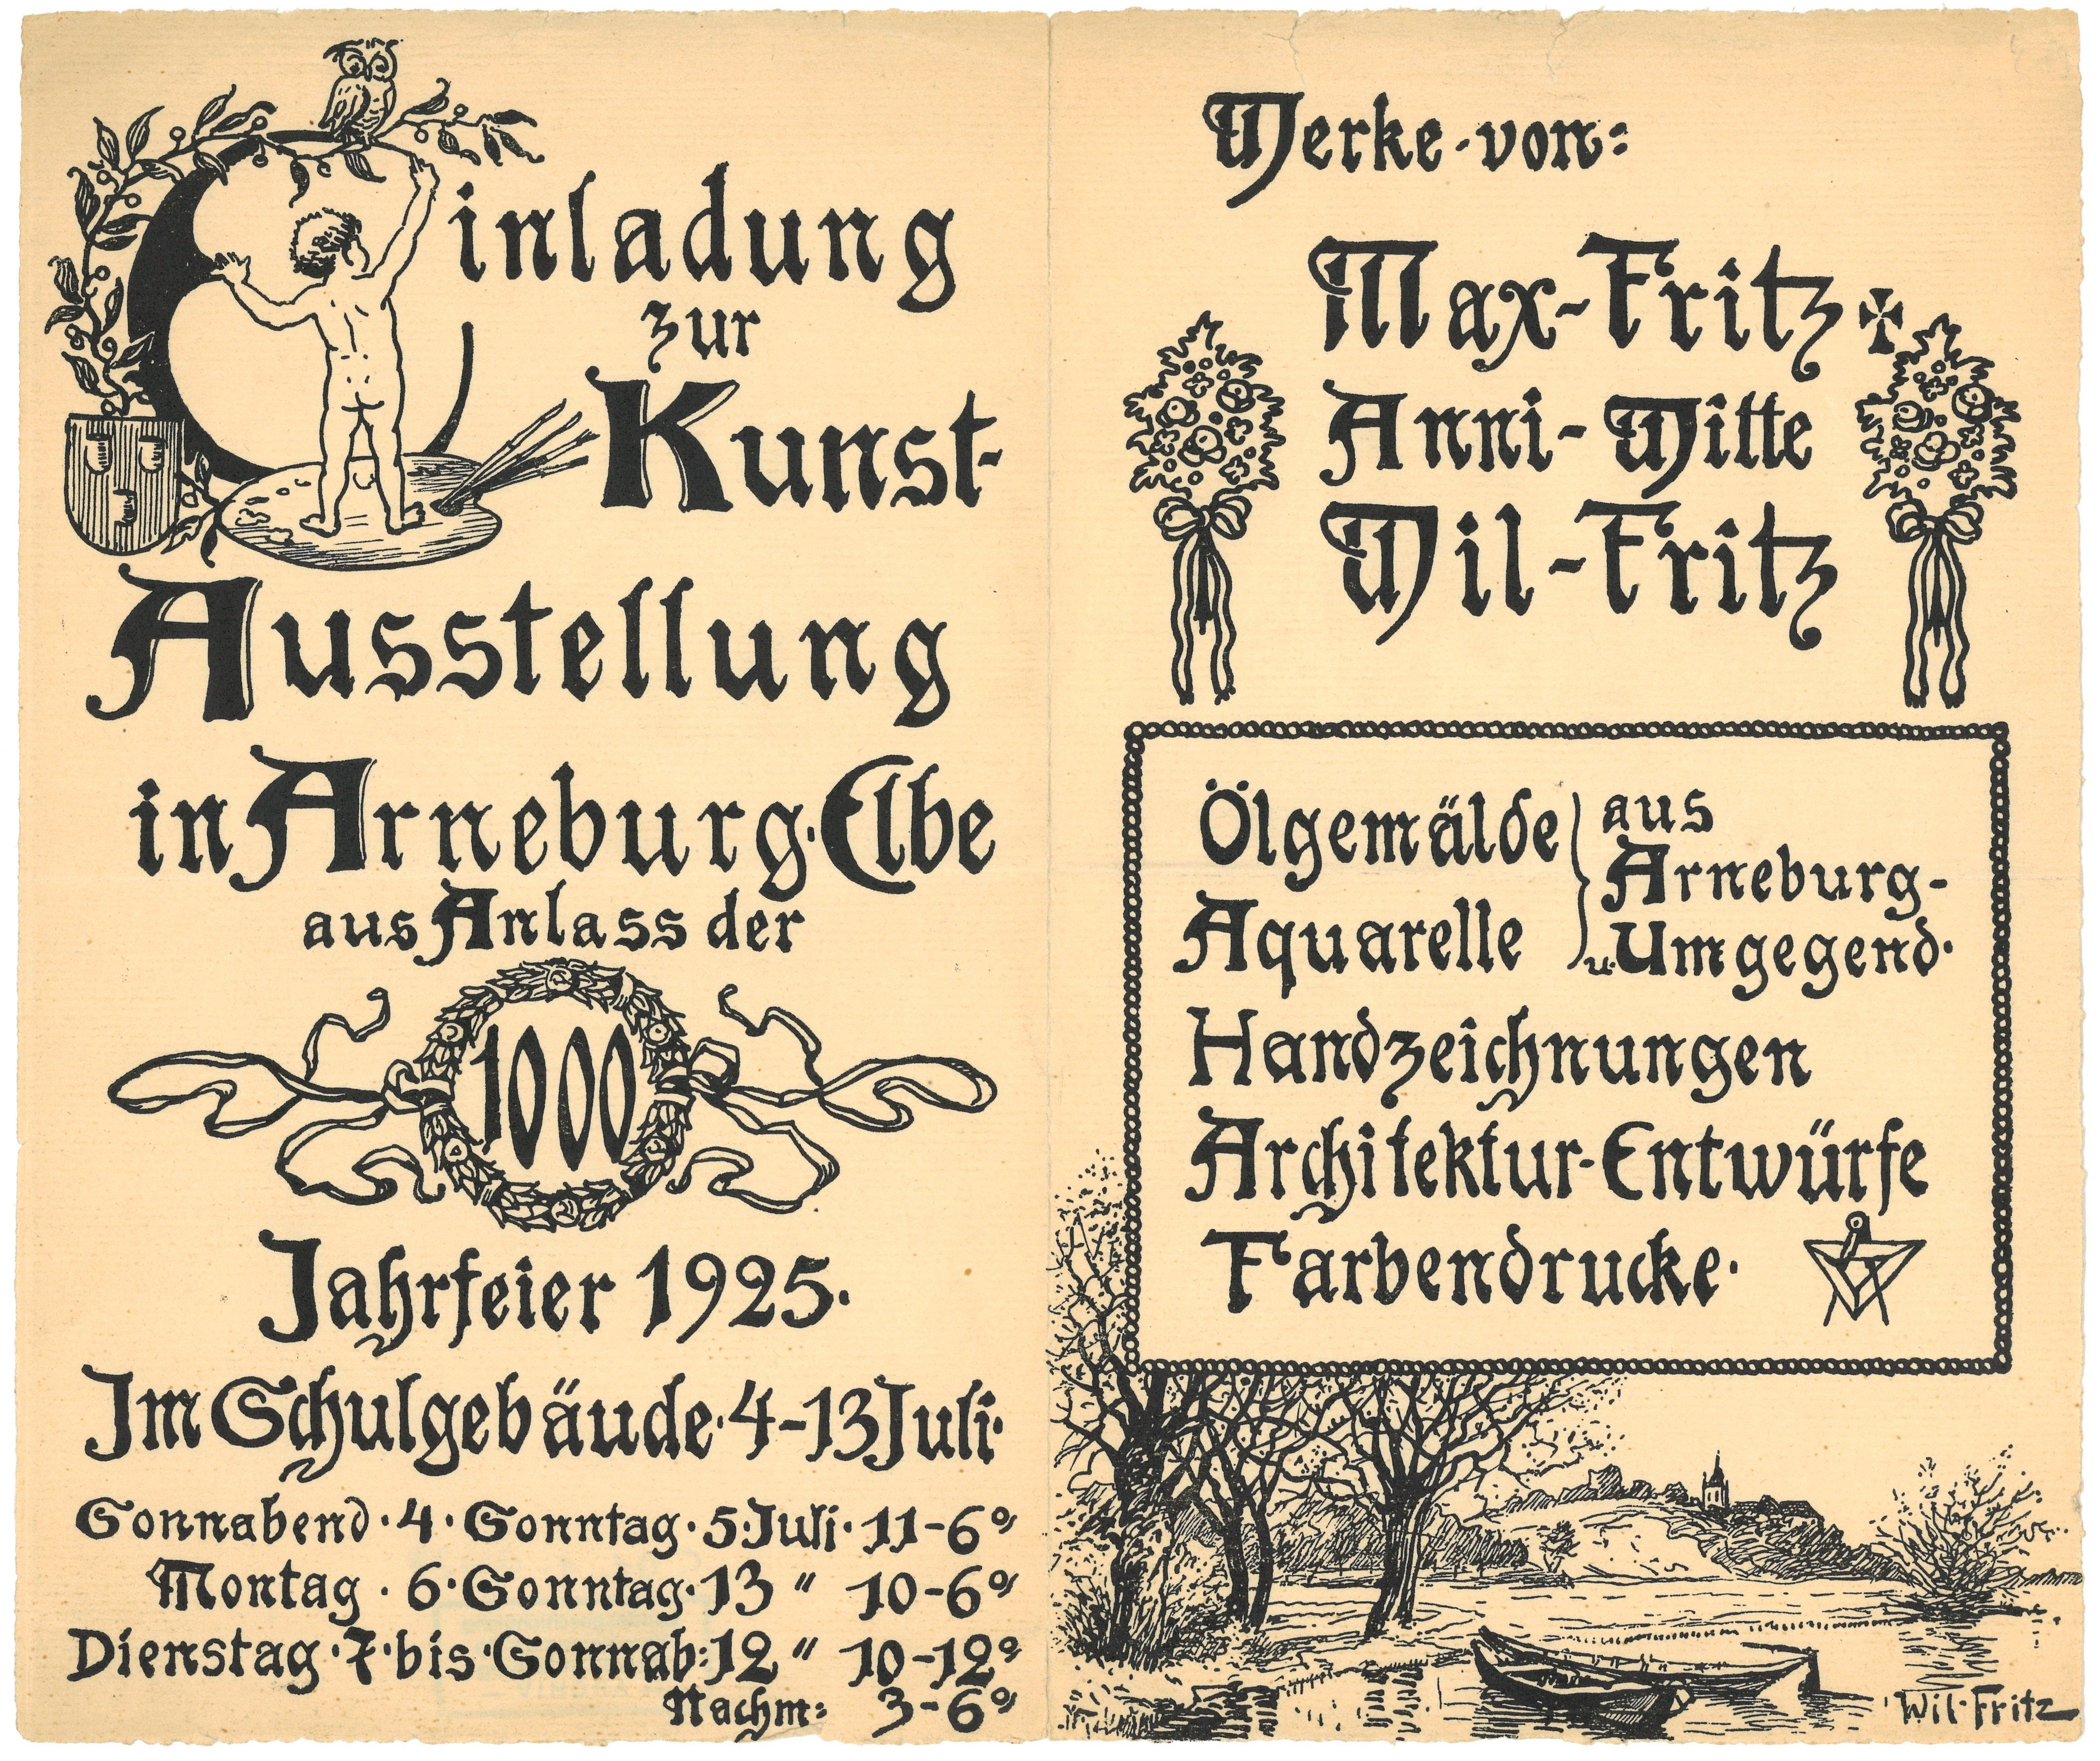 Einladung
zur
Kunst-
Ausstellung
in Arneburg·Elbe
aus Anlass der
1000
Jahrfeier 1925·
Im Schulgebäude·4-13 Juli·
Sonnabend·4·Sonntag·5·Juli·11-6°
Montag·6·Sonntag·13 " 10-6°
Dienstag·7·bis·Sonnab:12 " 10-12°
Nachm: 3-6°
Werke·von:
Max-Fritz ✠
Anni-Witte
Wil-Fritz
Ölgemälde } aus
Arneburg-
Aquarelle u. Umgegend·
Handzeichnungen
Architektur-Entwürfe
Farbendrucke·
Wil·Fritz